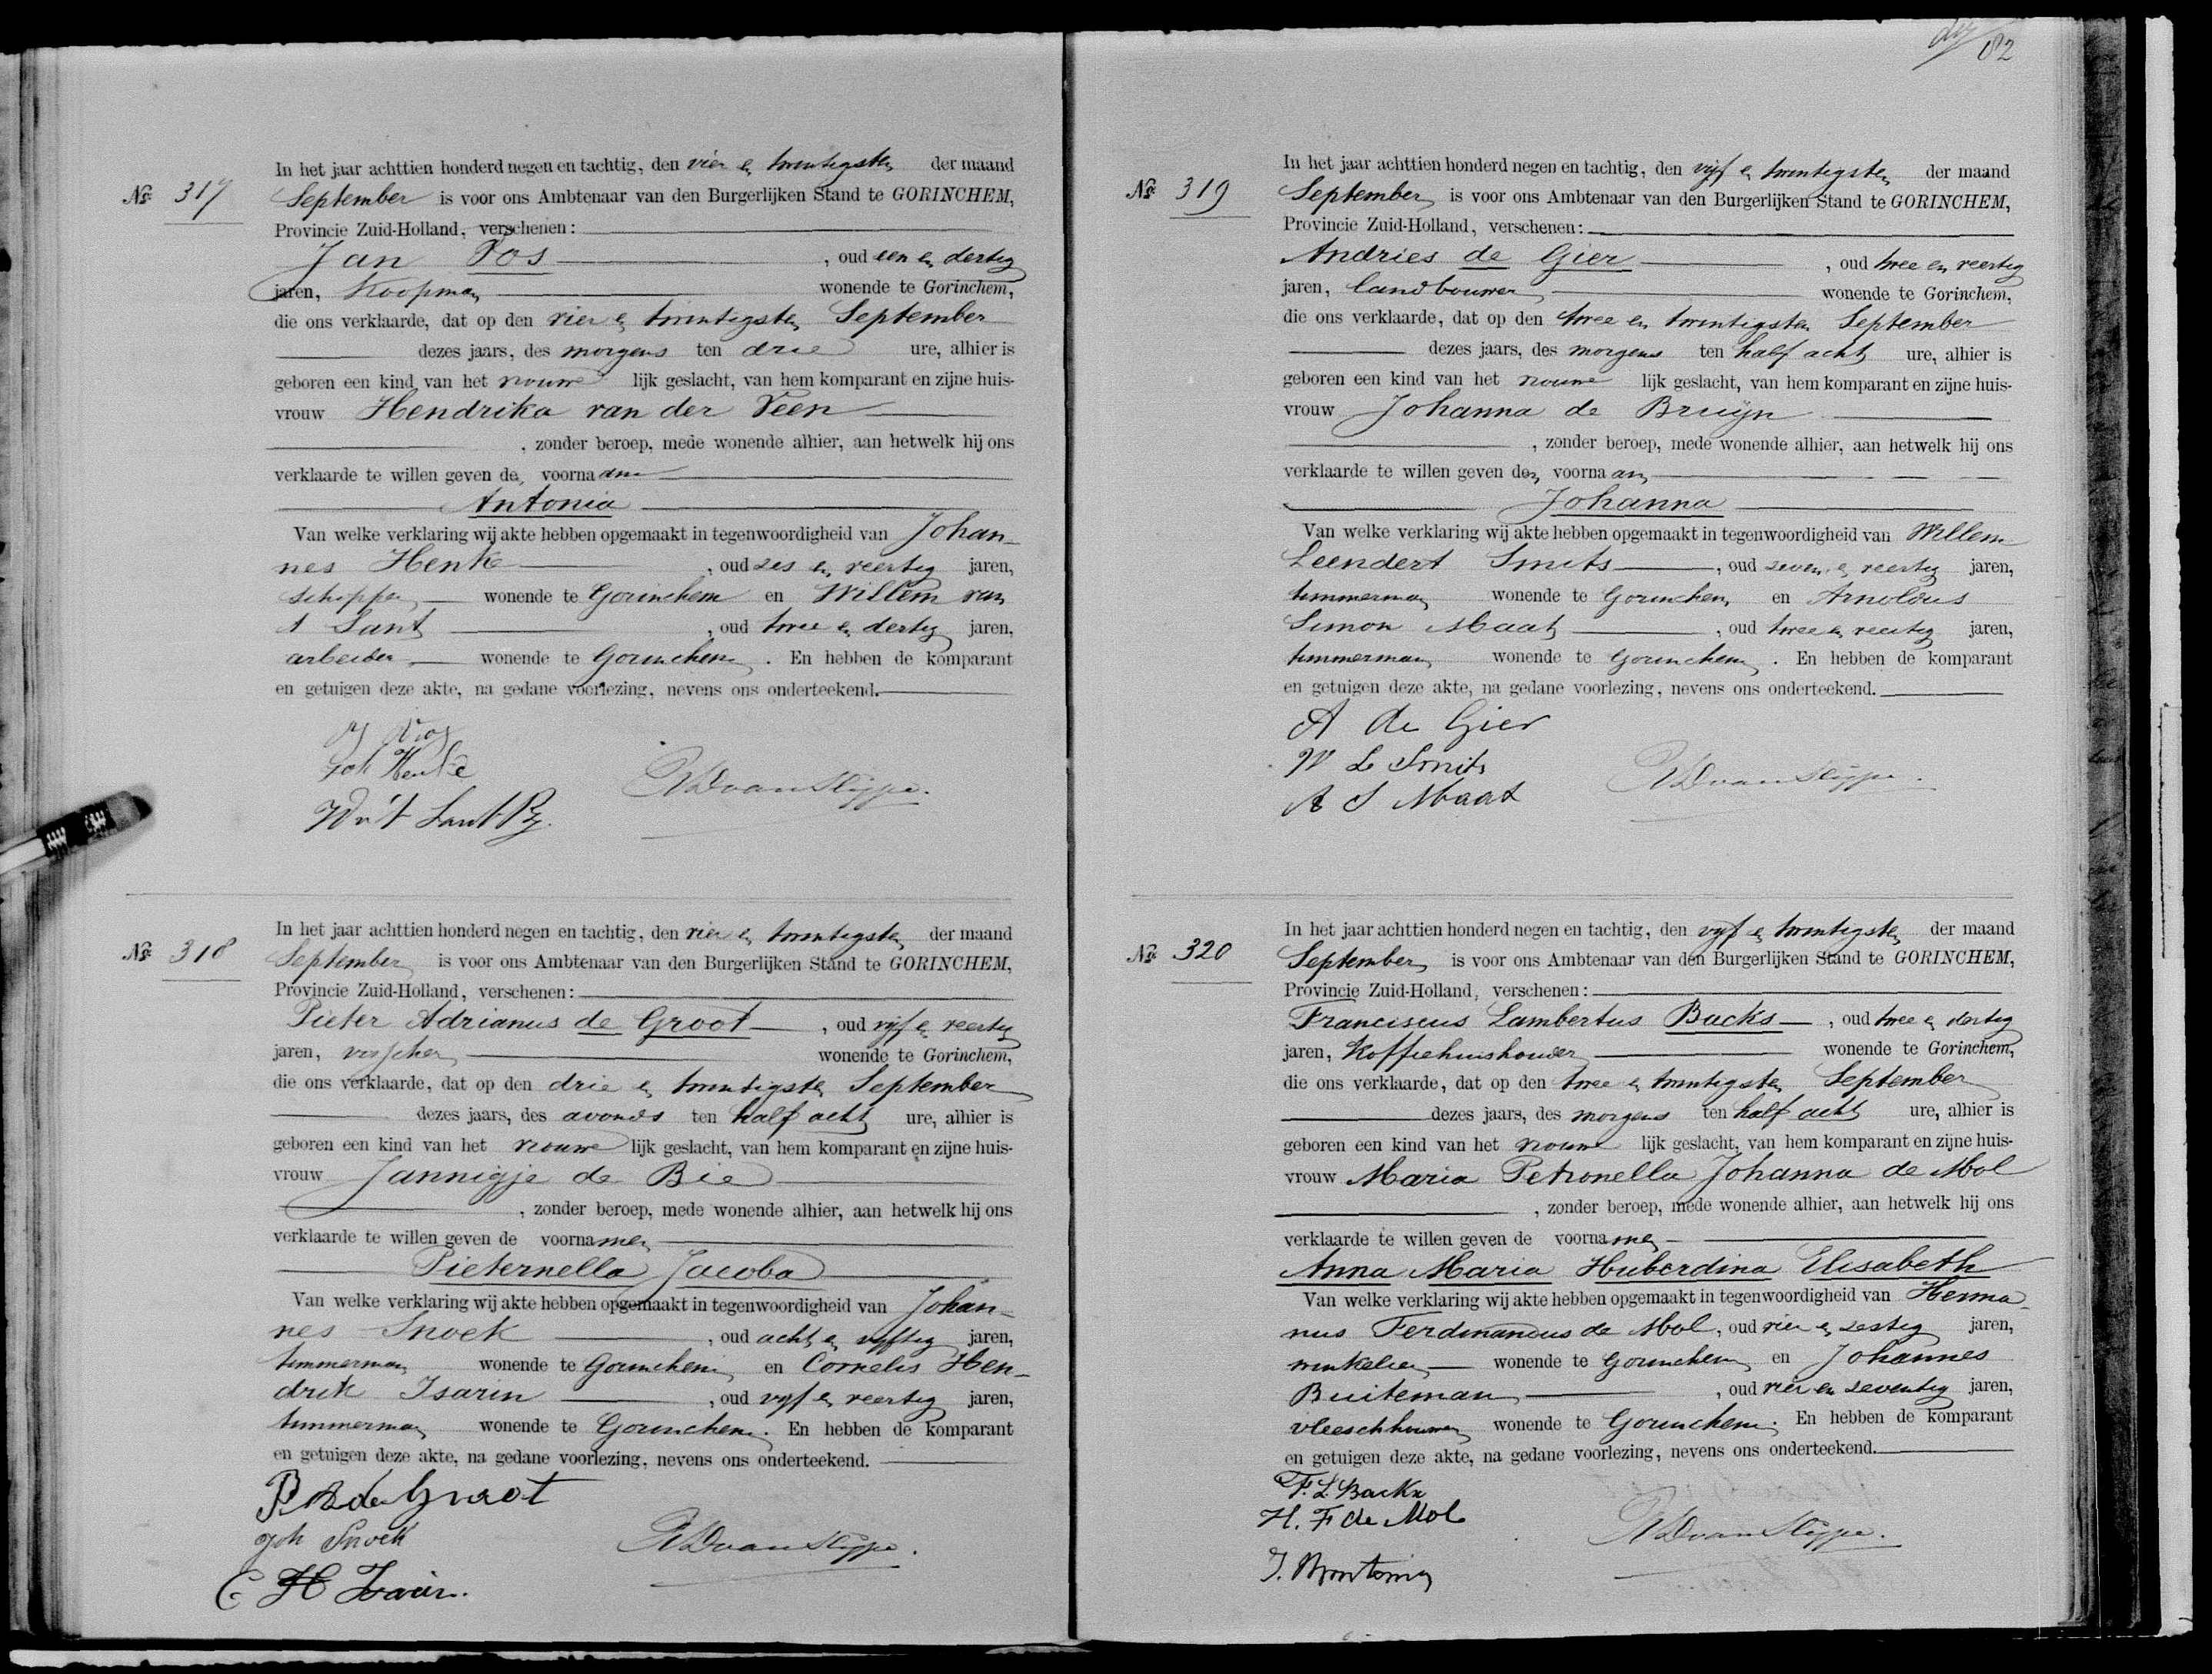 No. 317
In het jaar achttien honderd negen en tachtig, den vier en twintigsten der maand
September is voor ons Ambtenaar van den Burgerlijken Stand te GORINCHEM,
Provincie Zuid-Holland, verschenen:
Jan Vos, oud een en dertig
jaren, Koopman wonende te Gorinchem,
die ons verklaarde, dat op den vier en twintigsten September
dezes jaars, des morgens ten drie ure, alhier is
geboren een kind van het vrouwelijk geslacht, van hem komparant en zijne huis-
vrouw Hendrika van der Veen
, zonder beroep, mede wonende alhier, aan hetwelk hij ons
verklaarde te willen geven de voornaam
Antonia
Van welke verklaring wij akte hebben opgemaakt in tegenwoordigheid van Johan-
nes Henke, oud zes en veertig jaren,
schipper wonende te Gorinchem en Willem van
't Sant, oud twee en dertig jaren,
arbeider wonende te Gorinchem. En hebben de komparant
en getuigen deze akte, na gedane voorlezing, nevens ons onderteekend.
J Vos
Joh Henke
W v 't Sant Pz.
van Slijpe.
No. 318
In het jaar achttien honderd negen en tachtig, den vier en twintigsten der maand
September is voor ons Ambtenaar van den Burgerlijken Stand te GORINCHEM,
Provincie Zuid-Holland, verschenen:
Pieter Adrianus de Groot, oud vijf en veertig
jaren, visscher wonende te Gorinchem,
die ons verklaarde, dat op den drie en twintigsten September
dezes jaars, des avonds ten half acht ure, alhier is
geboren een kind van het vrouwelijk geslacht, van hem komparant en zijne huis-
vrouw Jannigje de Bie
, zonder beroep, mede wonende alhier, aan hetwelk hij ons
verklaarde te willen geven de voornamen
Pieternella Jacoba
Van welke verklaring wij akte hebben opgemaakt in tegenwoordigheid van Johan-
nes Snoek, oud acht en vijftig jaren,
timmerman wonende te Gorinchem en Cornelis Hen-
drik Isarin, oud vijf en veertig jaren,
timmerman wonende te Gorinchem. En hebben de komparant
en getuigen deze akte, na gedane voorlezing, nevens ons onderteekend.
P A de Groot
Joh Snoek
C H Isarin.
van Slijpe.
82
No. 319
In het jaar achttien honderd negen en tachtig, den vijf en twintigsten der maand
September is voor ons Ambtenaar van den Burgerlijken Stand te GORINCHEM,
Provincie Zuid-Holland, verschenen:
Andries de Gier, oud twee en veertig
jaren, landbouwer wonende te Gorinchem,
die ons verklaarde, dat op den twee en twintigsten September
dezes jaars, des morgens ten half acht ure, alhier is
geboren een kind van het vrouwelijk geslacht, van hem komparant en zijne huis-
vrouw Johanna de Bruijn
, zonder beroep, mede wonende alhier, aan hetwelk hij ons
verklaarde te willen geven den voornaam
Johanna
Van welke verklaring wij akte hebben opgemaakt in tegenwoordigheid van Willem
Leendert Smits, oud zeven en veertig jaren,
timmerman wonende te Gorinchem en Arnoldus
Simon Maat, oud twee en veertig jaren,
timmerman wonende te Gorinchem. En hebben de komparant
en getuigen deze akte, na gedane voorlezing, nevens ons onderteekend.
A de Gier
W L Smits
A S Maat
van Slijpe.
No. 320
In het jaar achttien honderd negen en tachtig, den vijf en twintigsten der maand
September is voor ons Ambtenaar van den Burgerlijken Stand te GORINCHEM,
Provincie Zuid-Holland, verschenen:
Franciscus Lambertus Backs, oud twee en dertig
jaren, Koffiehuishouder wonende te Gorinchem,
die ons verklaarde, dat op den twee en twintigsten September
dezes jaars, des morgens ten half acht ure, alhier is
geboren een kind van het vrouwelijk geslacht, van hem komparant en zijne huis-
vrouw Maria Petronella Johanna de Mol
, zonder beroep, mede wonende alhier, aan hetwelk hij ons
verklaarde te willen geven de voornamen
Anna Maria Huberdina Elisabeth
Van welke verklaring wij akte hebben opgemaakt in tegenwoordigheid van Herma-
nus Ferdinandus de Mol, oud vier en zestig jaren,
winkelier wonende te Gorinchem en Johannes
Buiteman, oud vier en zeventig jaren,
vleeschhouwer wonende te Gorinchem. En hebben de komparant
en getuigen deze akte, na gedane voorlezing, nevens ons onderteekend.
F. L. Backx
H. F de Mol
van Slijpe.